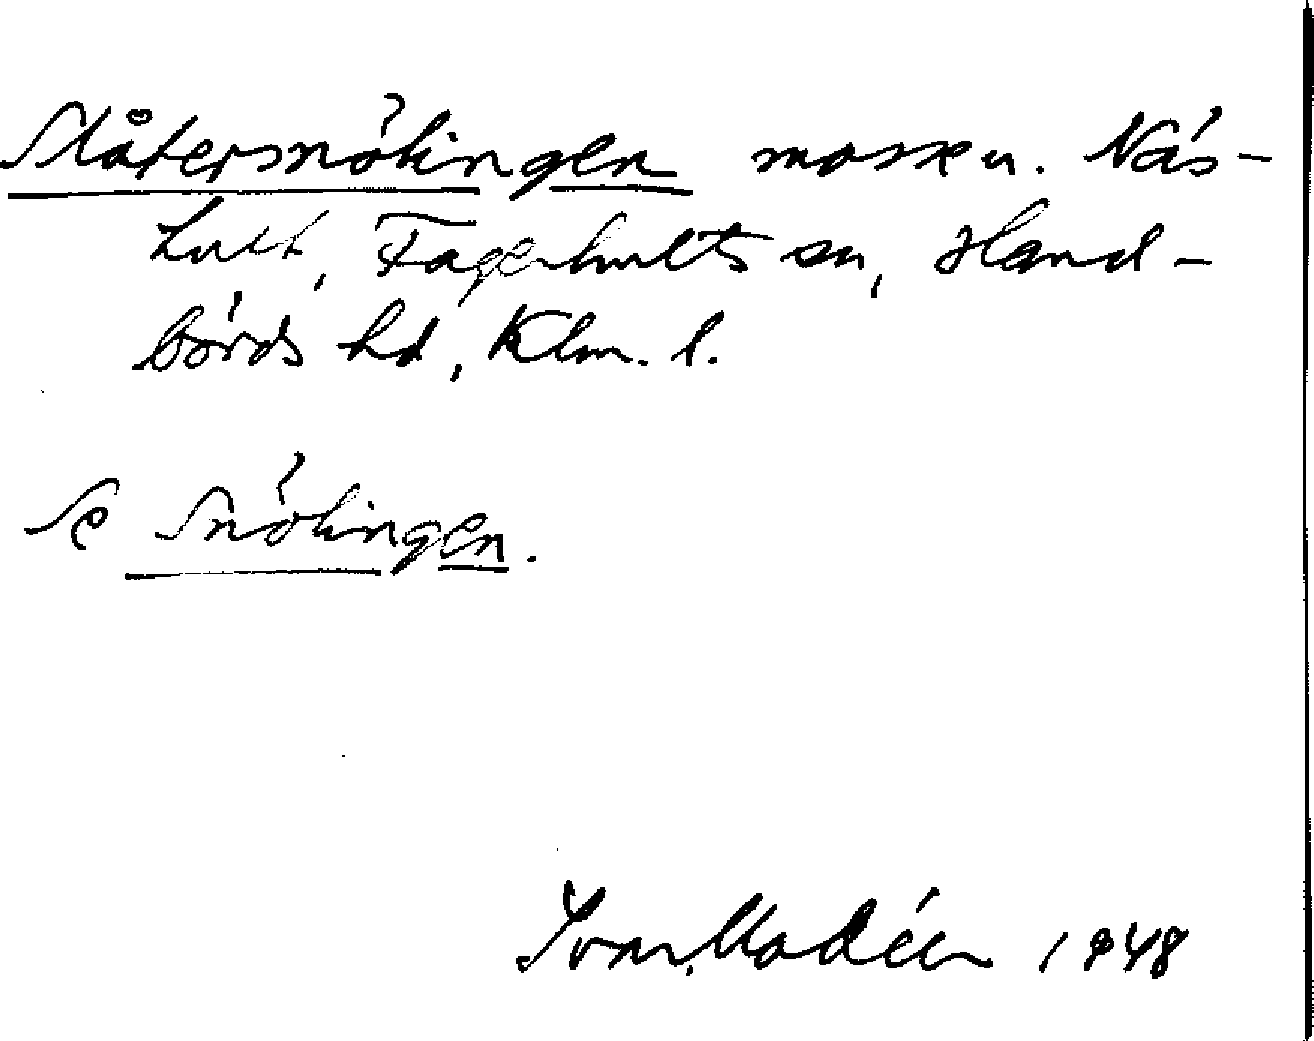 Slåtersnökingen mosse u. Näs-
hult, Fagerhults sn, Hand-
börds hd, Klm. l.
Se Snökingen.
Ivar Modéer 1948